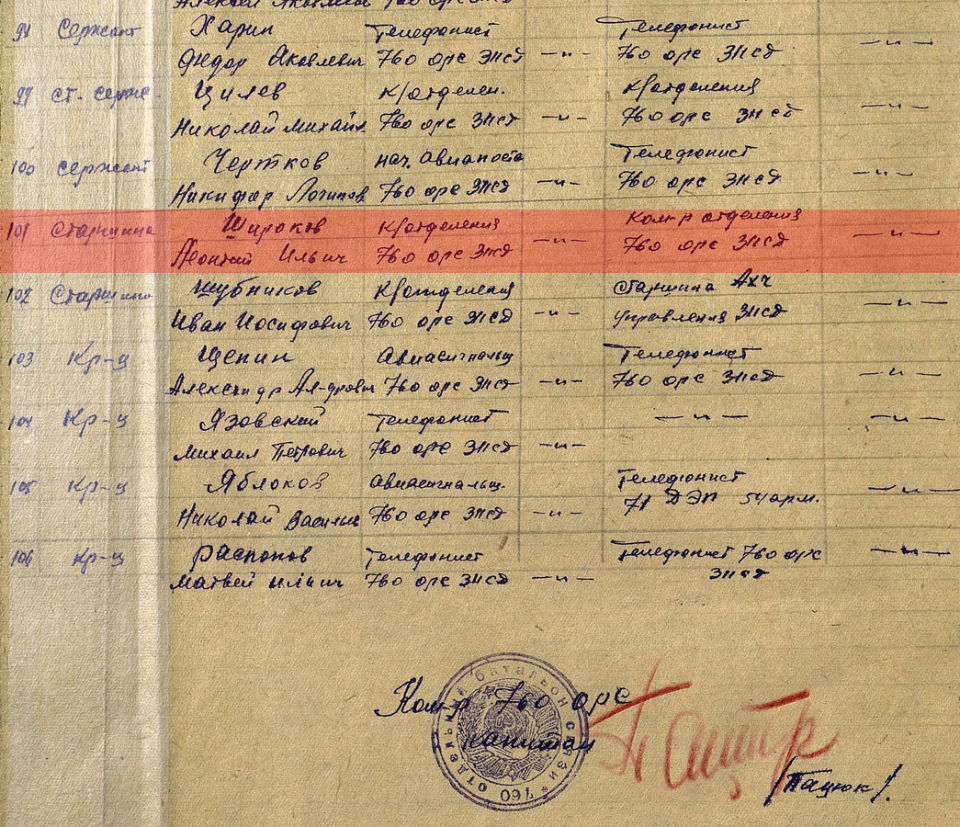 Алексей Яковлевич 760 орс
98 Сержант Харин Телефонист Телефонист
Федор Яковлевич 760 орс 3нсд —"— 760 орс 3нсд —"—
99 ст. серж. Цилев к/отделен. к/отделения
Николай Михайл 760 орс 3нсд —"— 760 орс 3нсд —"—
100 сержант Чертков нач. авиапоста Телефонист
Никифор Логинов 760 орс 3нсд —"— 760 орс 3нсд —"—
101 Старшина Широков к/отделения Ком-р отделения
Леонтий Ильич 760 орс 3нсд —"— 760 орс 3нсд —"—
102 Старшина Шубников к/отделения старшина АХЧ
Иван Иосифович 760 орс 3нсд —"— управления 3нсд —"—
103 Кр-ц Щепин Авиасигнальщ Телефонист
Александр Ал-дрович 760 орс 3нсд —"— 760 орс 3нсд —"—
104 Кр-ц Язовский Телефонист —"— —"—
Михаил Петрович 760 орс 3нсд —"—
105 Кр-ц Яблоков Авиасигнальщ. Телефонист
Николай Василье 760 орс 3нсд —"— 71 ДЭП 54 арм. —"—
106 Кр-ц Распопов Телефонист Телефонист 760 орс —"—
Матвей Ильич 760 орс 3нсд —"— 3нсд
Ком-р 760 орс
капитан
/Пацюк/.
* 760 ОТДЕЛЬНЫЙ батальон СВЯЗИ